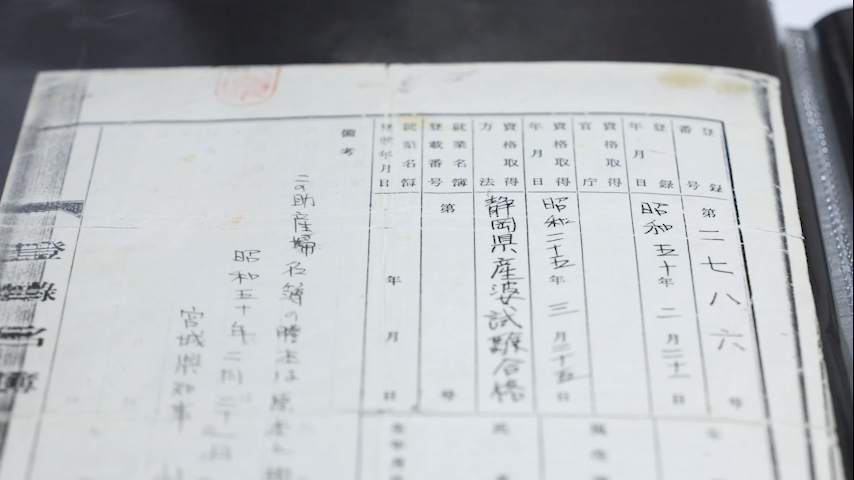 登録番号 第二七八六号
登録年月日 昭和五十年二月二十一日
資格取得官庁
資格取得年月日 昭和二十五年三月二十五日
資格取得方法 静岡県産婆試験合格
就業名簿登載番号 第 号
就業名簿登載年月日 年 月 日
備考
この助産婦名簿の謄本は原本と
昭和五十年二月二十一日
宮城県知事